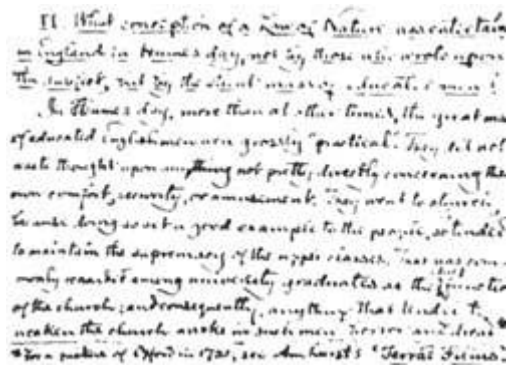 II. What conception of a Law of Nature was entertained
in England in Hume's day, not by those who wrote upon
the subject, but by the silent mass of educated men?
In Hume's day, more than at other times, the great mass
of educated Englishmen were grossly "practical". They did not
waste thought upon anything not pretty directly concerning their
own comfort, security, or amusement. They went to church,
because doing so set a good example to the people, so tended
to maintain the supremacy of the upper classes. That was com-
monly regarded among university graduates as the chief function
of the church; and consequently, anything that tended to
weaken the church awoke in such men horror and dread
*For a picture of Oxford in 1721, see Amhurst's "Terrae Filius".